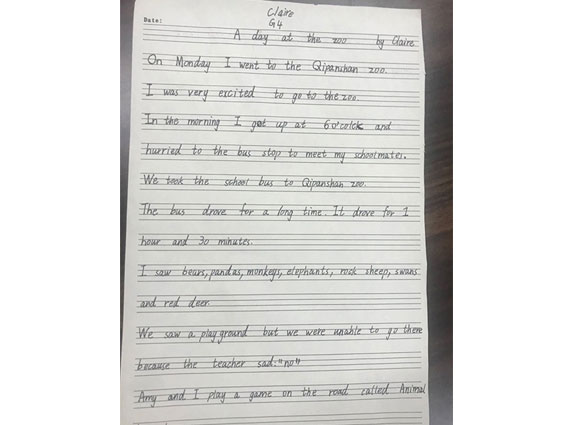 Claire
G4
Date:
A day at the zoo by Claire
On Monday I went to the Qipanshan zoo.
I was very excited to go to the zoo.
In the morning I got up at 6 o'colck and
hurried to the bus stop to meet my schoolmates.
We took the school bus to Qipanshan zoo.
The bus drove for a long time. It drove for 1
hour and 30 minutes.
I saw bears, pandas, monkeys, elephants, rock sheep, swans
and red deer.
We saw a playground but we were unable to go there
because the teacher sad: "no"
Amy and I play a game on the road called Animal